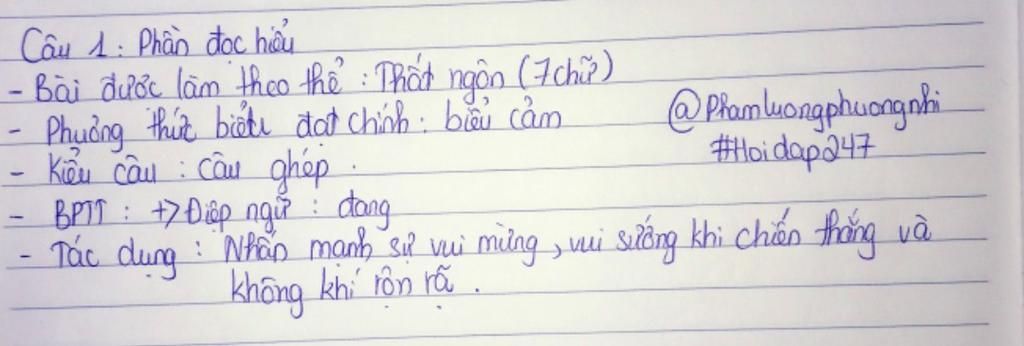 Câu 1: Phần đọc hiểu
- Bài được làm theo thể : Thất ngôn (7 chữ)
- Phương thức biểu đạt chính : biểu cảm
@Phamluongphuongnhi
- Kiểu câu : Câu ghép .
#Hoidap247
- BPTT : +> Điệp ngữ : đang
- Tác dụng : Nhấn mạnh sự vui mừng, vui sướng khi chiến thắng và
không khí rộn rã .